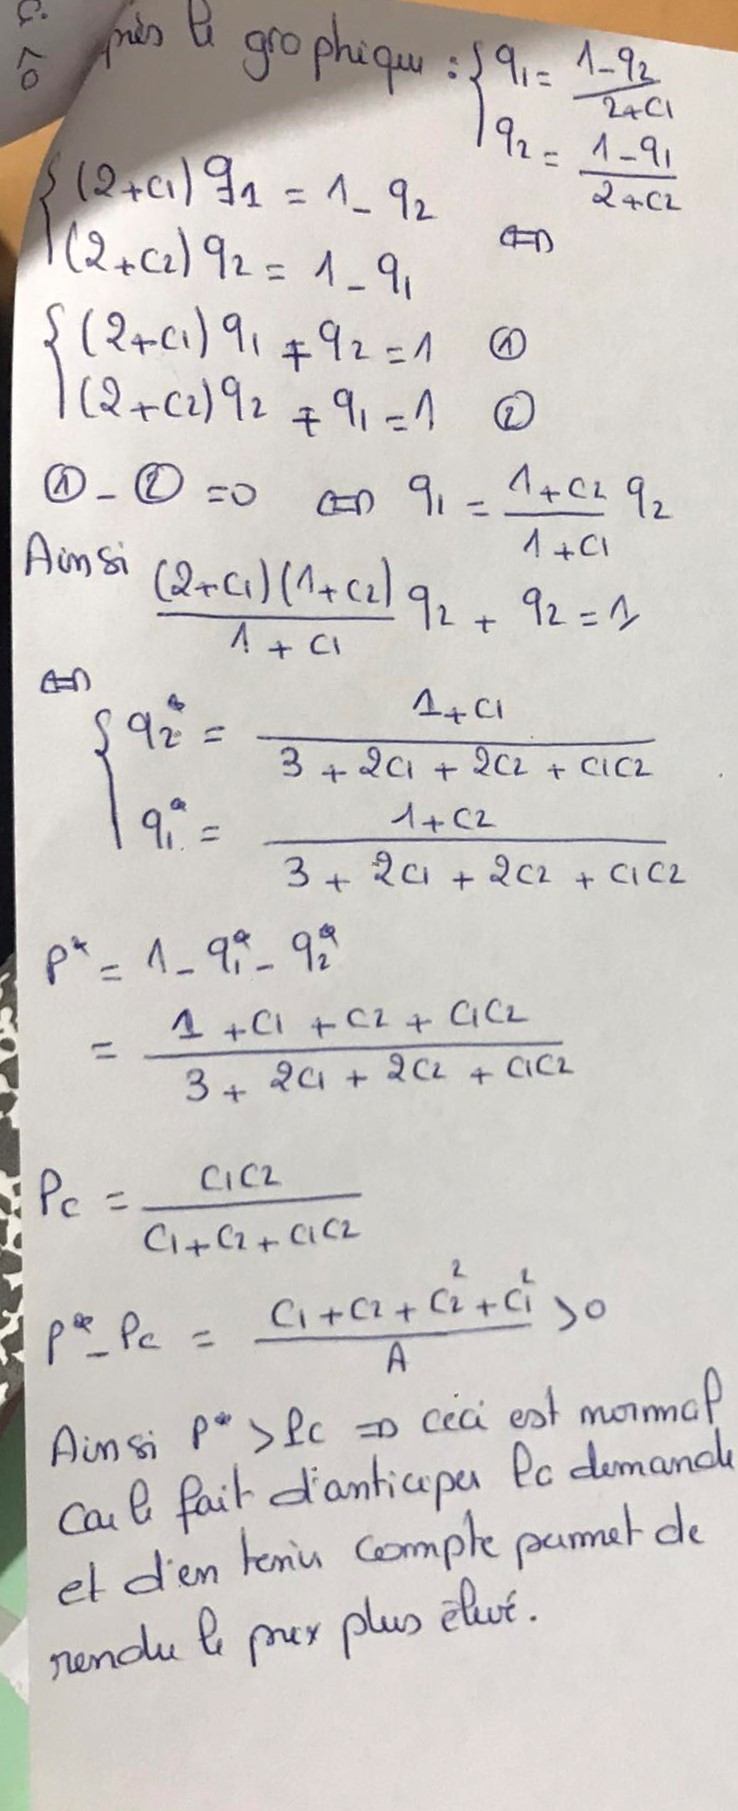 près le graphique : { q1 = (1-q2)/(2+c1)
q2 = (1-q1)/(2+c2)
{ (2+c1) q1 = 1 - q2
(2+c2) q2 = 1 - q1 ⇔
{ (2+c1) q1 + q2 = 1 ①
(2+c2) q2 + q1 = 1 ②
① - ② = 0 ⇔ q1 = (1+c2)/(1+c1) q2
Ainsi (2+c1)(1+c2)/(1+c1) q2 + q2 = 1
⇔
{ q2* = (1+c1)/(3+2c1+2c2+c1c2)
q1* = (1+c2)/(3+2c1+2c2+c1c2)
P* = 1 - q1* - q2*
= (1+c1+c2+c1c2)/(3+2c1+2c2+c1c2)
Pc = c1c2/(c1+c2+c1c2)
P* - Pc = (c1+c2+c2²+c1²)/A > 0
Ainsi P* > Pc ⇒ ceci est normal
car le fait d'anticiper la demande
et d'en tenir compte permet de
rendre le prix plus élevé.